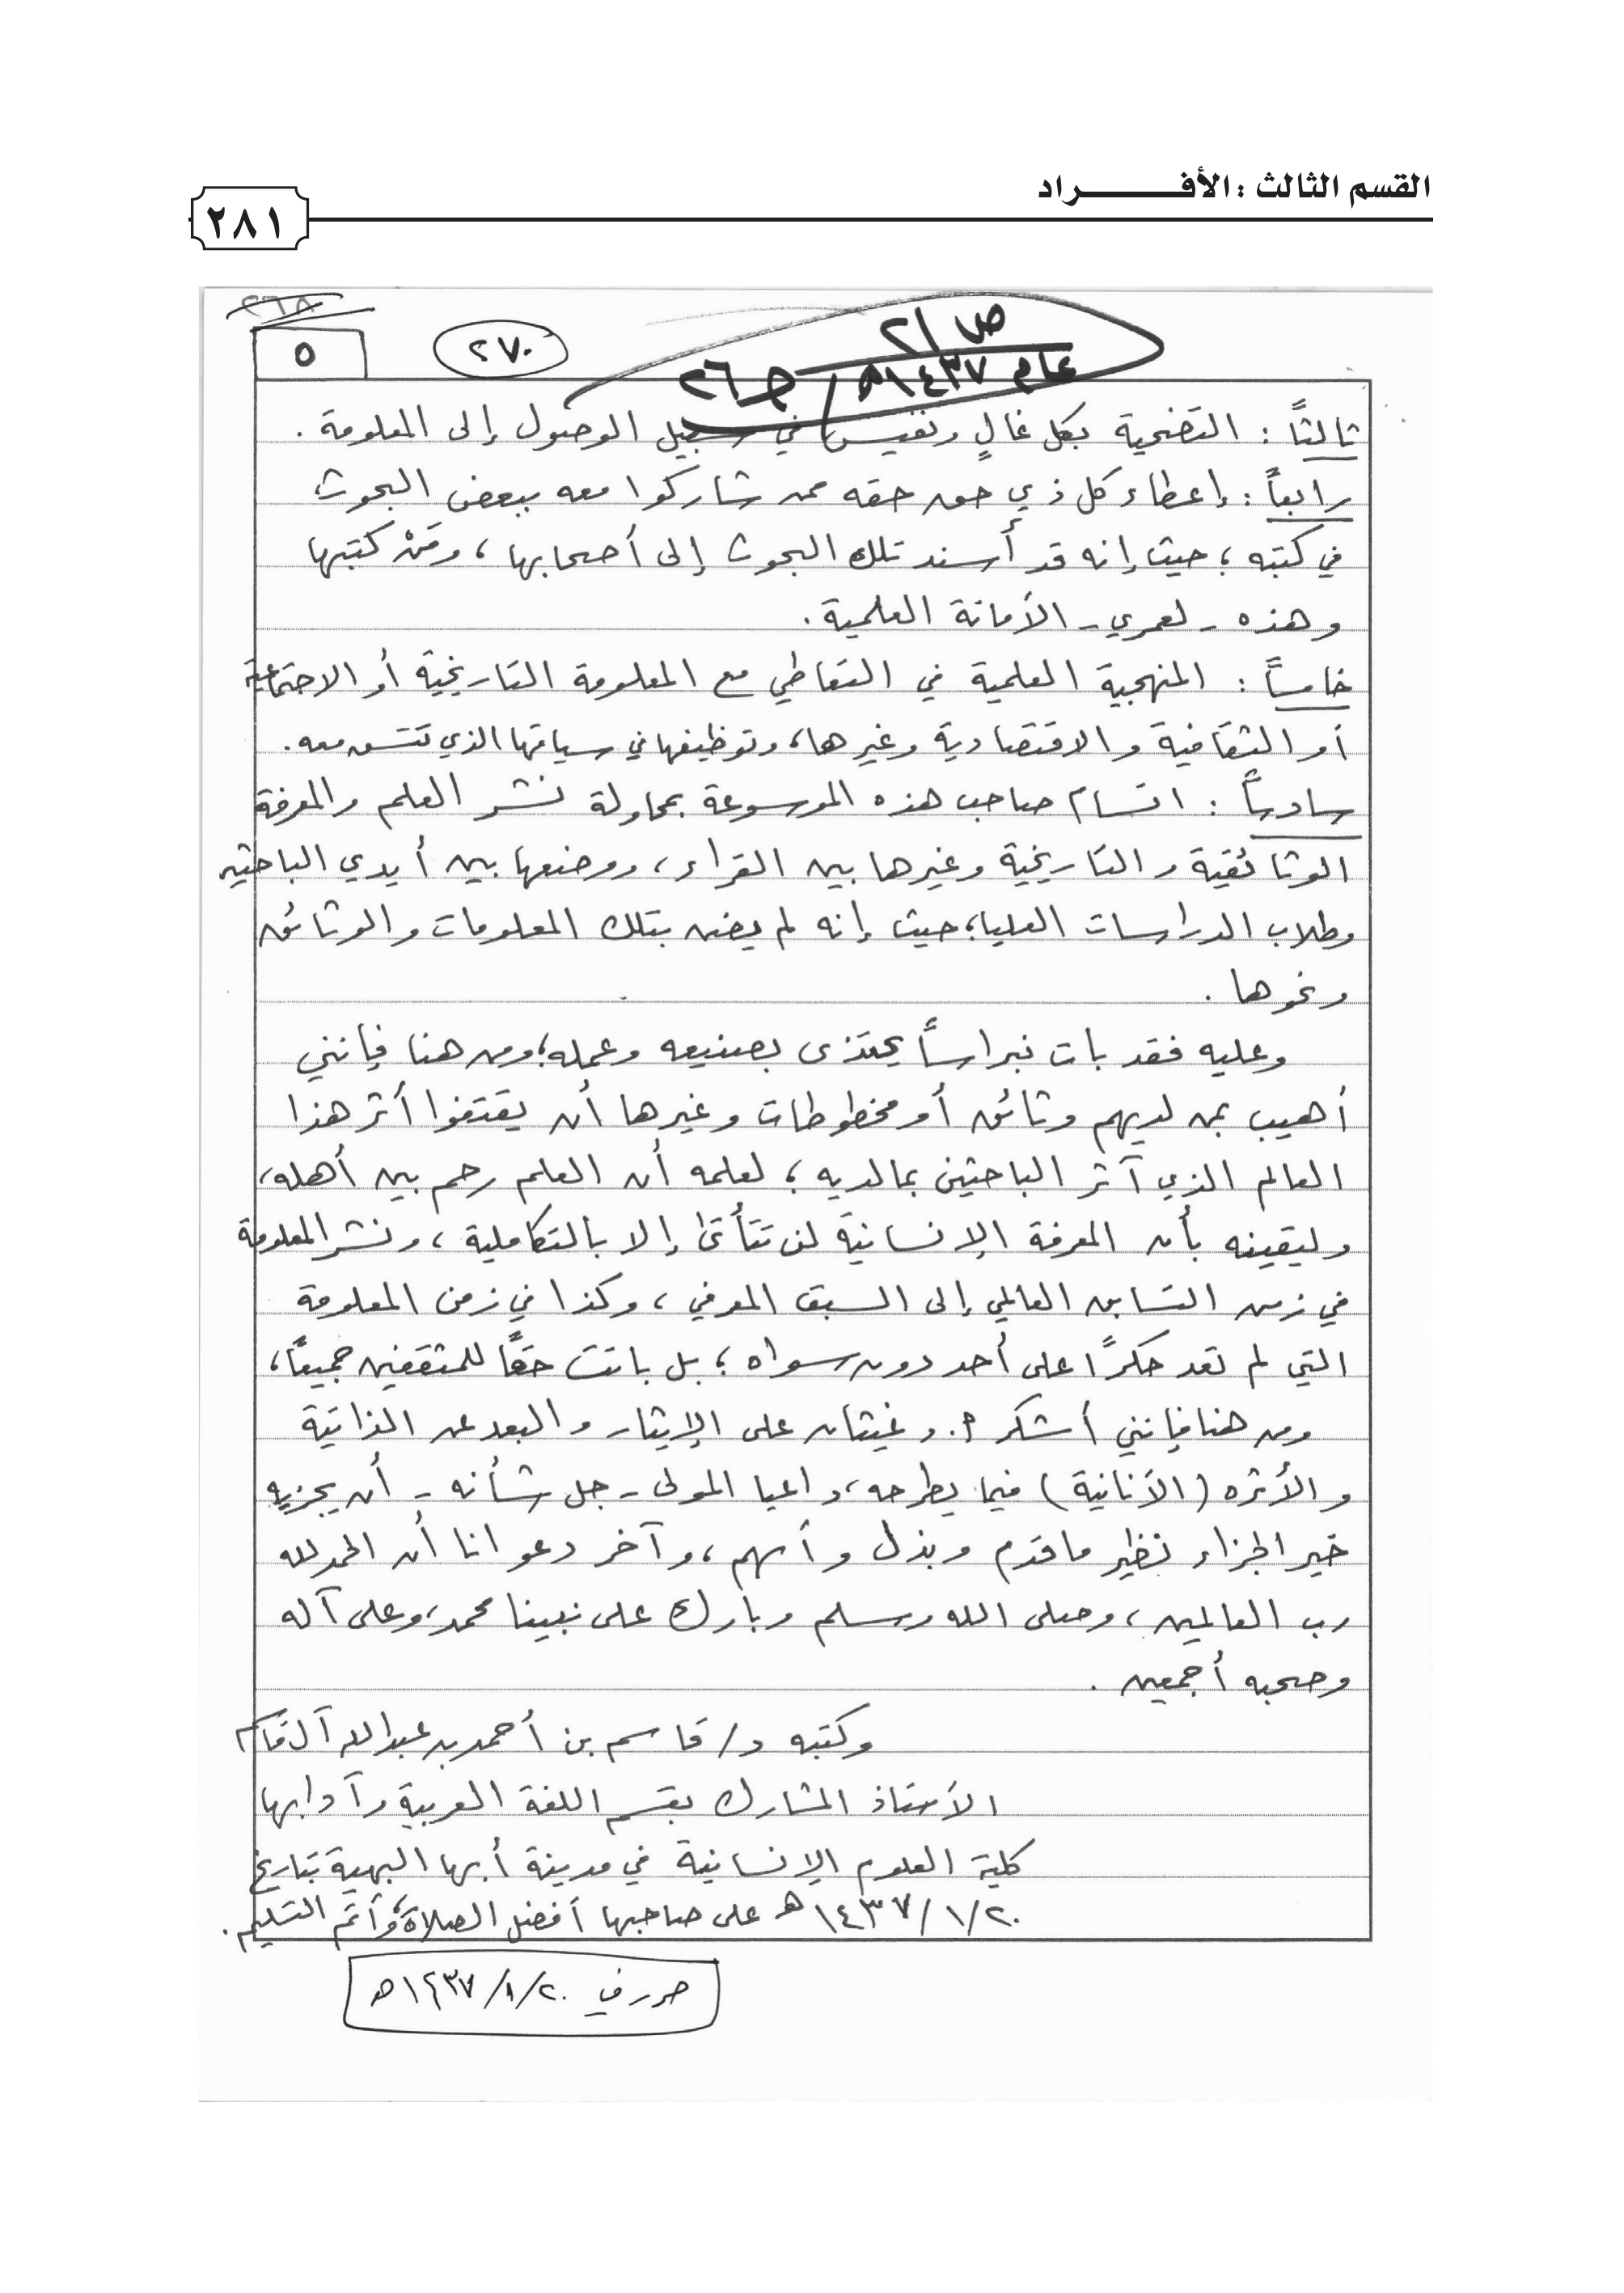 القسم الثالث : الأفـــــــراد
٢٨١
٢٦٨
ص / ٢١
٥
٢٧٠
عام ١٤٣٧هـ / ج ٢٦
ثالثاً : التضحية بكل غالٍ ونفيس في سبيل الوصول إلى المعلومة .
رابعاً : إعطاء كل ذي حق حقه ممن شاركوا معه ببعض البحوث
في كتبه ؛ حيث إنه قد أسند تلك البحوث إلى أصحابها ، ومَنْ كتبها
وهذه - لعمري - الأمانة العلمية .
خامساً : المنهجية العلمية في التعاطي مع المعلومة التاريخية أو الاجتماعية
أو الثقافية والاقتصادية وغيرها ، وتوظيفها في سياقها الذي تتسق معه .
سادساً : اتسام صاحب هذه الموسوعة بمحاولة نشر العلم والمعرفة
الوثائقية والتاريخية وغيرها بين القراء ، ووضعها بين أيدي الباحثين
وطلاب الدراسات العليا ؛ حيث إنه لم يضن بتلك المعلومات والوثائق
ونحوها .
وعليه فقد بات نبراساً يحتذى بصنيعه وعمله ؛ ومن هنا فإنني
أهيب بمن لديهم وثائق أو مخطوطات وغيرها أن يقتفوا أثر هذا
العالم الذي آثر الباحثين بمالديه ؛ لعلمه أن العلم رحم بين أهله ،
وليقينه بأن المعرفة الإنسانية لن تتأتى إلا بالتكاملية ، ونشر المعلومة
في زمن التسابق العالمي إلى السبق المعرفي ، وكذا في زمن المعلومة
التي لم تعد حكرًا على أحد دون سواه ؛ بل باتت حقًا للمثقفين جميعًا ،
ومن هنا فإنني أشكر أ.د غيثان على الإيثار والبعد عن الذاتية
والأثره (الأنانية) فيما يطرحه ، داعيا المولى - جل شأنه - أن يجزيه
خير الجزاء نظير ما قدم وبذل وأسهم ، وآخر دعوانا أن الحمد لله
رب العالمين ، وصلى الله وسلم وبارك على نبينا محمد ، وعلى آله
وصحبه أجمعين .
وكتبه د/ قاسم بن أحمد بن عبدالله آل قاسم
الأستاذ المشارك بقسم اللغة العربية وآدابها
كلية العلوم الإنسانية في مدينة أبها البهية بتاريخ
٢٠/ ١/ ١٤٣٧ هـ على صاحبها أفضل الصلاة ، وأتم التسليم .
حرر في ٢٠/١/١٤٣٧هـ